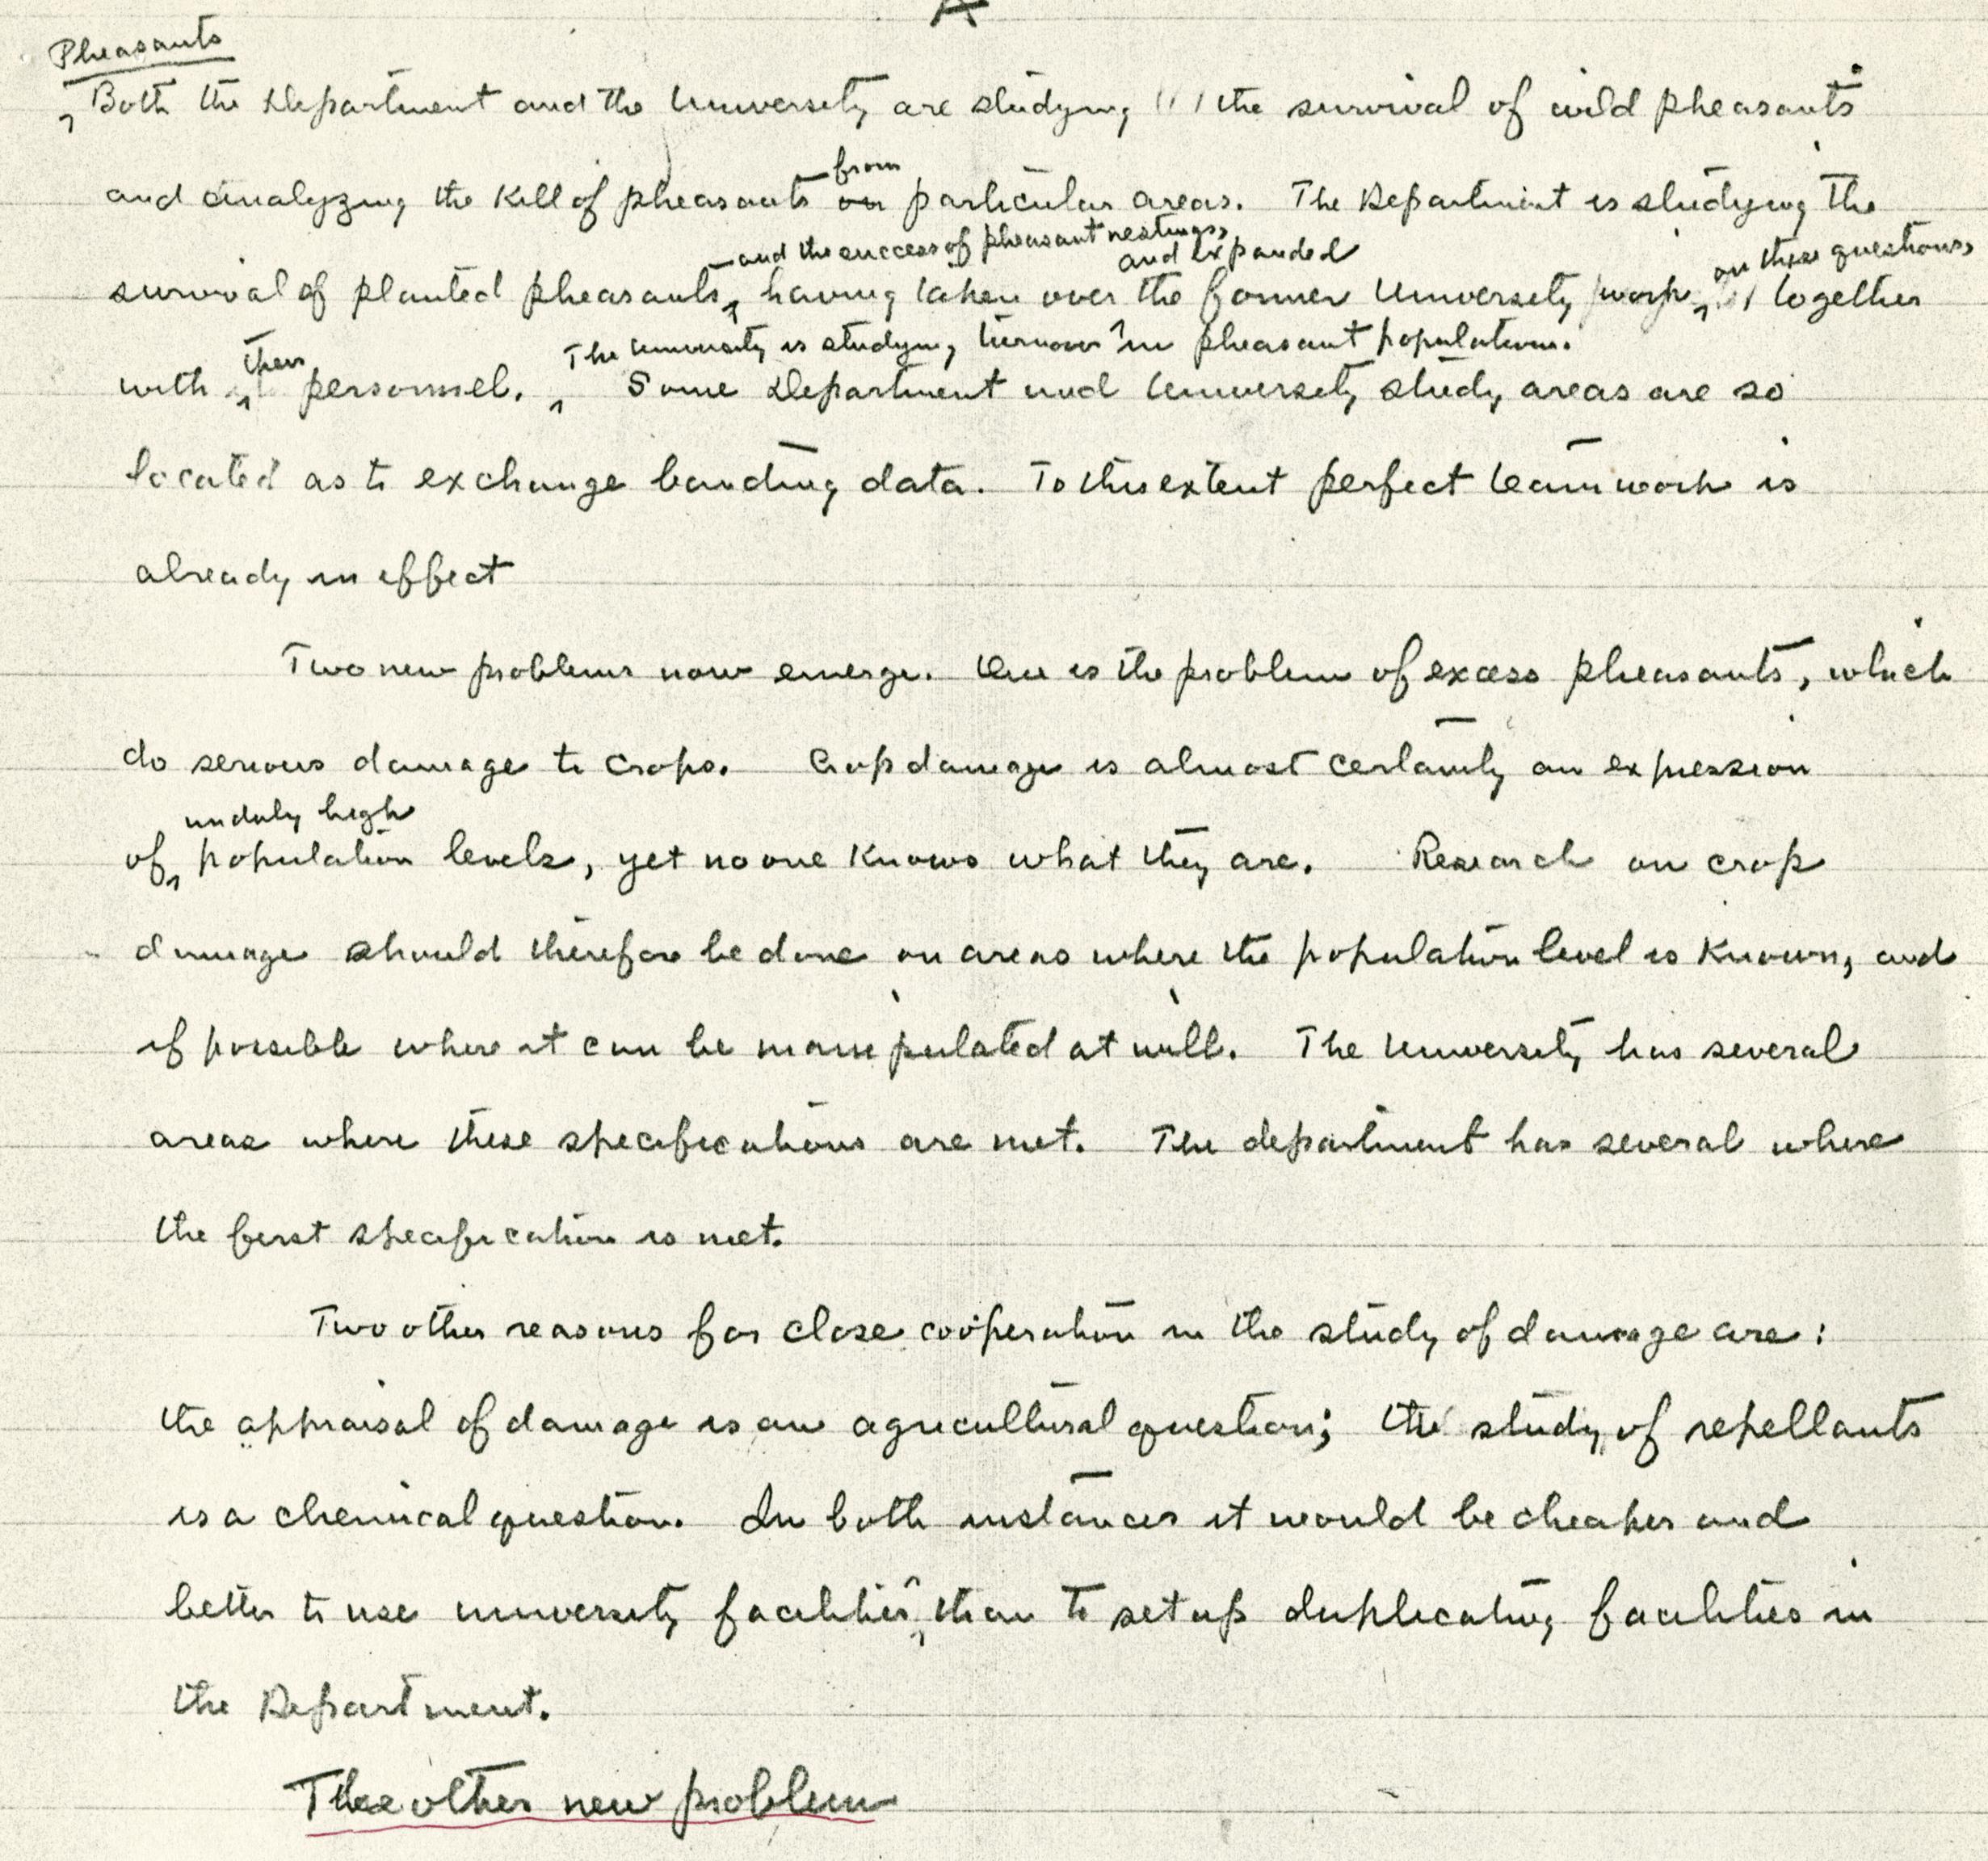 Pheasants
Both the Department and the University are studying the survival of wild pheasants
and analyzing the kill of pheasants on from particular areas. The Department is studying the
and the success of pheasant nestings,
and expanded
on these questions,
survival of planted pheasants, having taken over the former University work together
The University is studying turnover in pheasant populations.
with their personnel. Some Department and University study areas are so
located as to exchange banding data. To this extent perfect teamwork is
already in effect
Two new problems now emerge. One is the problem of excess pheasants, which
do serious damage to crops. Crop damage is almost certainly an expression
unduly high
of population levels, yet no one knows what they are. Research on crop
damage should therefore be done on areas where the population level is known, and
if possible where it can be manipulated at will. The University has several
areas where these specifications are met. The department has several where
the first specification is met.
Two other reasons for close coöperation in the study of damage are:
the appraisal of damage is an agricultural question; the study of repellants
is a chemical question. In both instances it would be cheaper and
better to use university facilities than to set up duplicating facilities in
the Department.
The other new problem